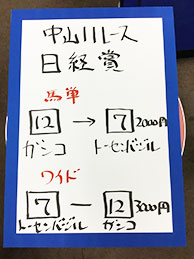 中山11レース
日経賞
馬単
12 → 7 2000円
ガシコ トーセンバジル
ワイド
7 ー 12 3000円
トーセンバジル ガシコ